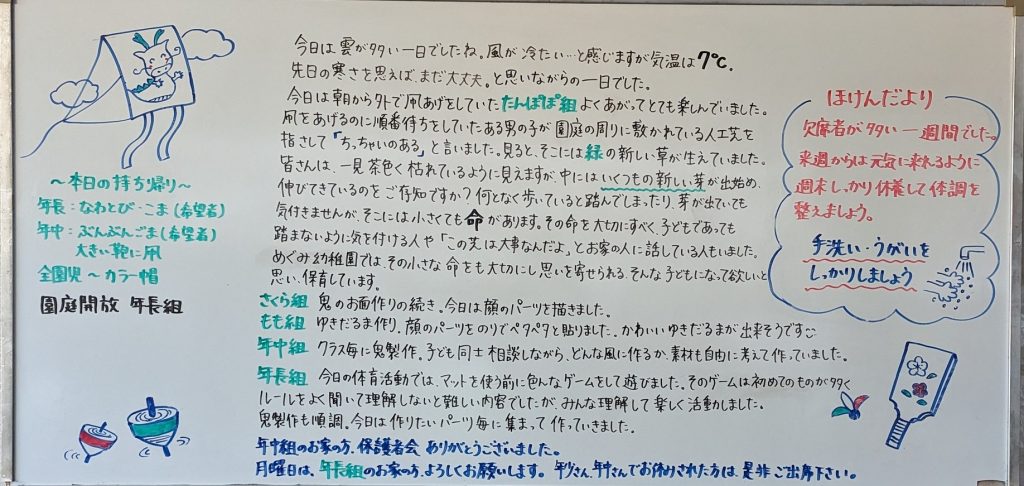 今日は雲が多い一日でしたね。風が冷たい…と感じますが気温は7℃.
先日の寒さを思えば、まだ大丈夫。と思いながらの一日でした。
今日は朝から外で凧あげをしていたたんぽぽ組よくあがってとても楽しんでいました。
凧をあげるのに順番待ちをしていたある男の子が園庭の周りに敷かれている人工芝を
指さして「ちっちゃいのある」と言いました。見ると、そこには緑の新しい草が生えていました。
皆さんは、一見茶色く枯れているように見えますが、中にはいくつもの新しい芽が出始め、
伸びてきているのをご存知ですか?何となく歩いていると踏んでしまったり、芽が出ていても
気付きませんが、そこには小さくても命があります。その命を大切にすべく、子どもであっても
踏まないように気を付ける人や「この芝は大事なんだよ」とお家の人に話している人もいました。
めぐみ幼稚園では、その小さな命をも大切にし思いを寄せられる、そんな子どもになって欲しいと
思い、保育しています。
さくら組 鬼のお面作りの続き。今日は顔のパーツを描きました。
もも組 ゆきだるま作り、顔のパーツをのりでペタペタと貼りました。かわいいゆきだるまが出来そうです
年中組 クラス毎に鬼製作。子ども同士相談しながら、どんな風に作るか、素材も自由に考えて作っていました。
年長組 今日の体育活動では、マットを使う前に色んなゲームをして遊びました。そのゲームは初めてのものが多く
ルールをよく聞いて理解しないと難しい内容でしたが、みんな理解して楽しく活動しました。
鬼製作も順調。今日は作りたいパーツ毎に集まって作っていきました。
年中組のお家の方、保護者会 ありがとうございました。
月曜日は、年長組のお家の方、よろしくお願いします。年少さん、年中さんでお休みされた方は、是非ご出席下さい。
〜本日の持ち帰り〜
年長:なわとび・こま(希望者)
年中:ぶんぶんごま(希望者)
大きい鞄に凧
全園児〜カラー帽
園庭開放 年長組
ほけんだより
欠席者が多い一週間でした。
来週からは元気に来れるように
週末しっかり休養して体調を
整えましょう。
手洗い・うがいを
しっかりしましょう